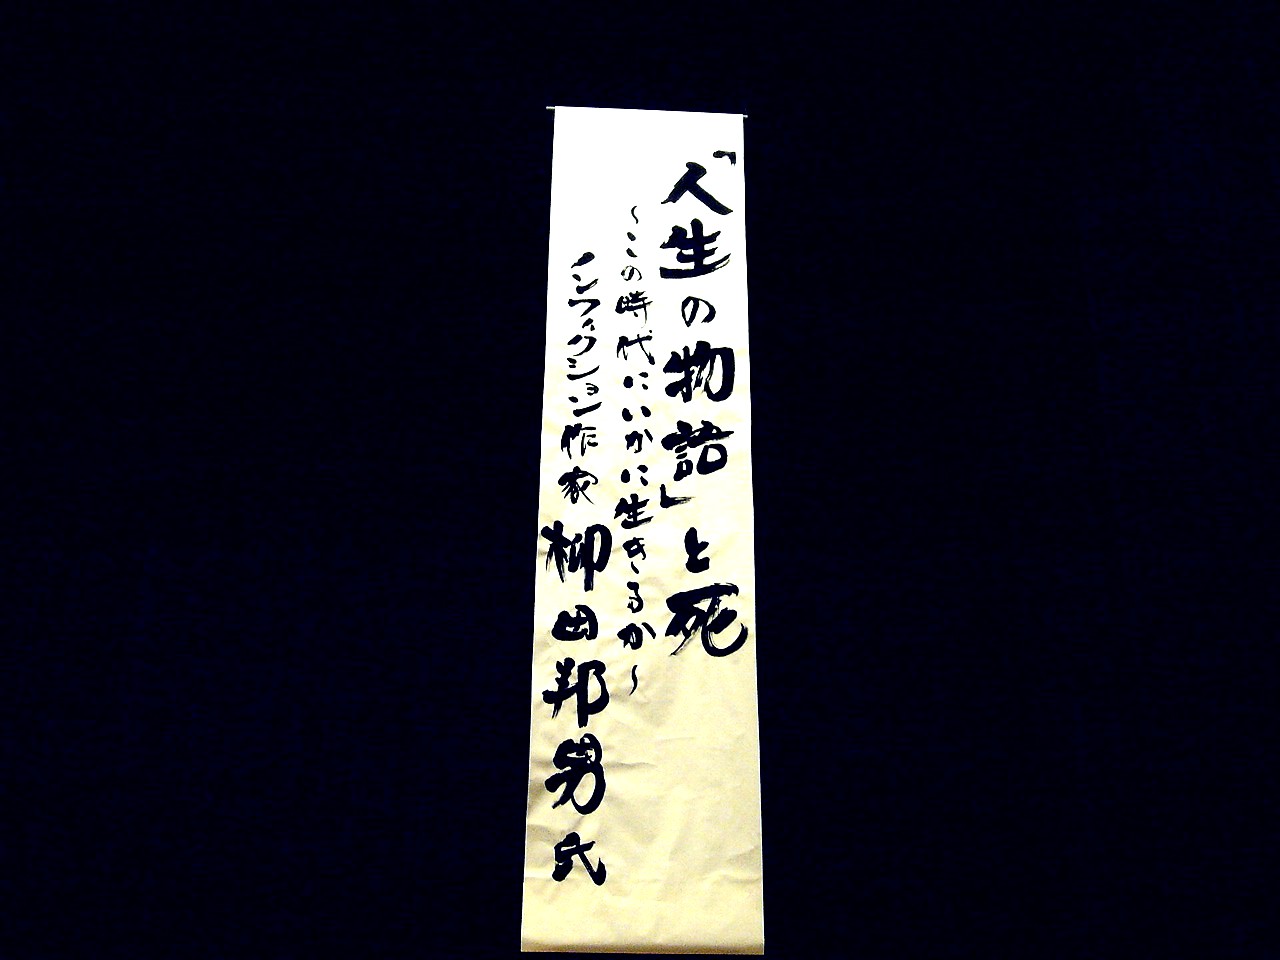 「人生の物語」と死
～この時代にいかに生きるか～
ノンフィクション作家 柳田邦男氏